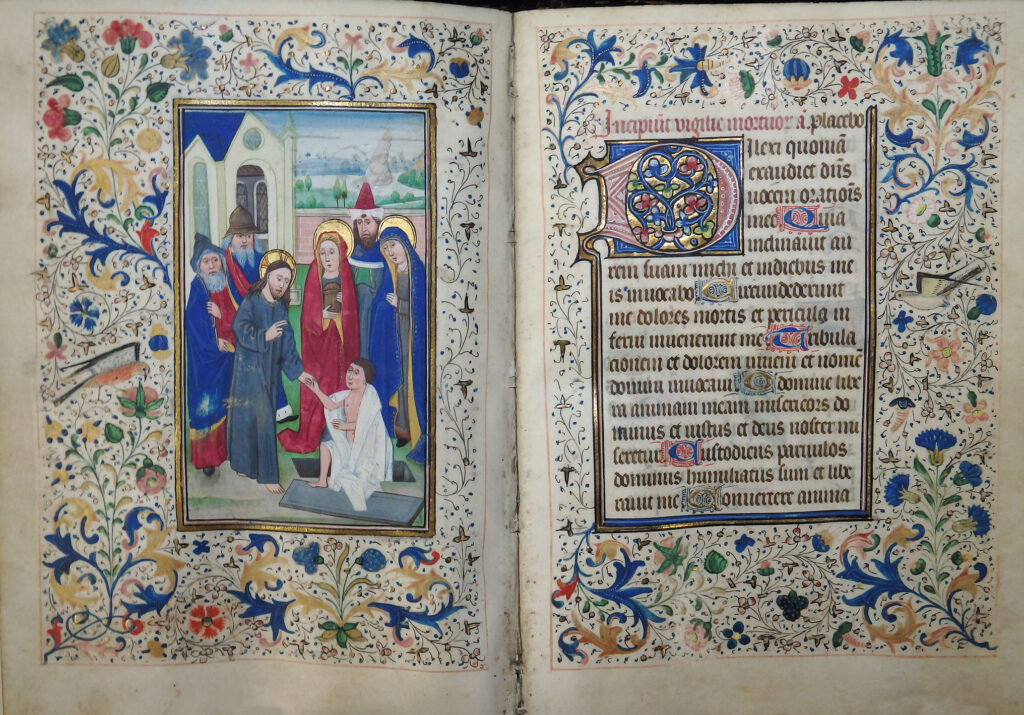 Incipiūt vigilie mortuor a. placebo
DIlexi quoniā
exaudiet dn̄s
vocem oration̄s
mee Quia
inclinavit au
rem suam michi et in diebus me
is invocabo Circumdederunt
me dolores mortis et pericula in
ferni invenerunt me Tribula
cionem et dolorem inveni et nome
domini invocavi O domine libe
ra animam meam misericors do
minus et iustus et deus noster mi
seretur Custodiens parvulos
dominus humiliatus sum et libe
ravit me Convertere anima